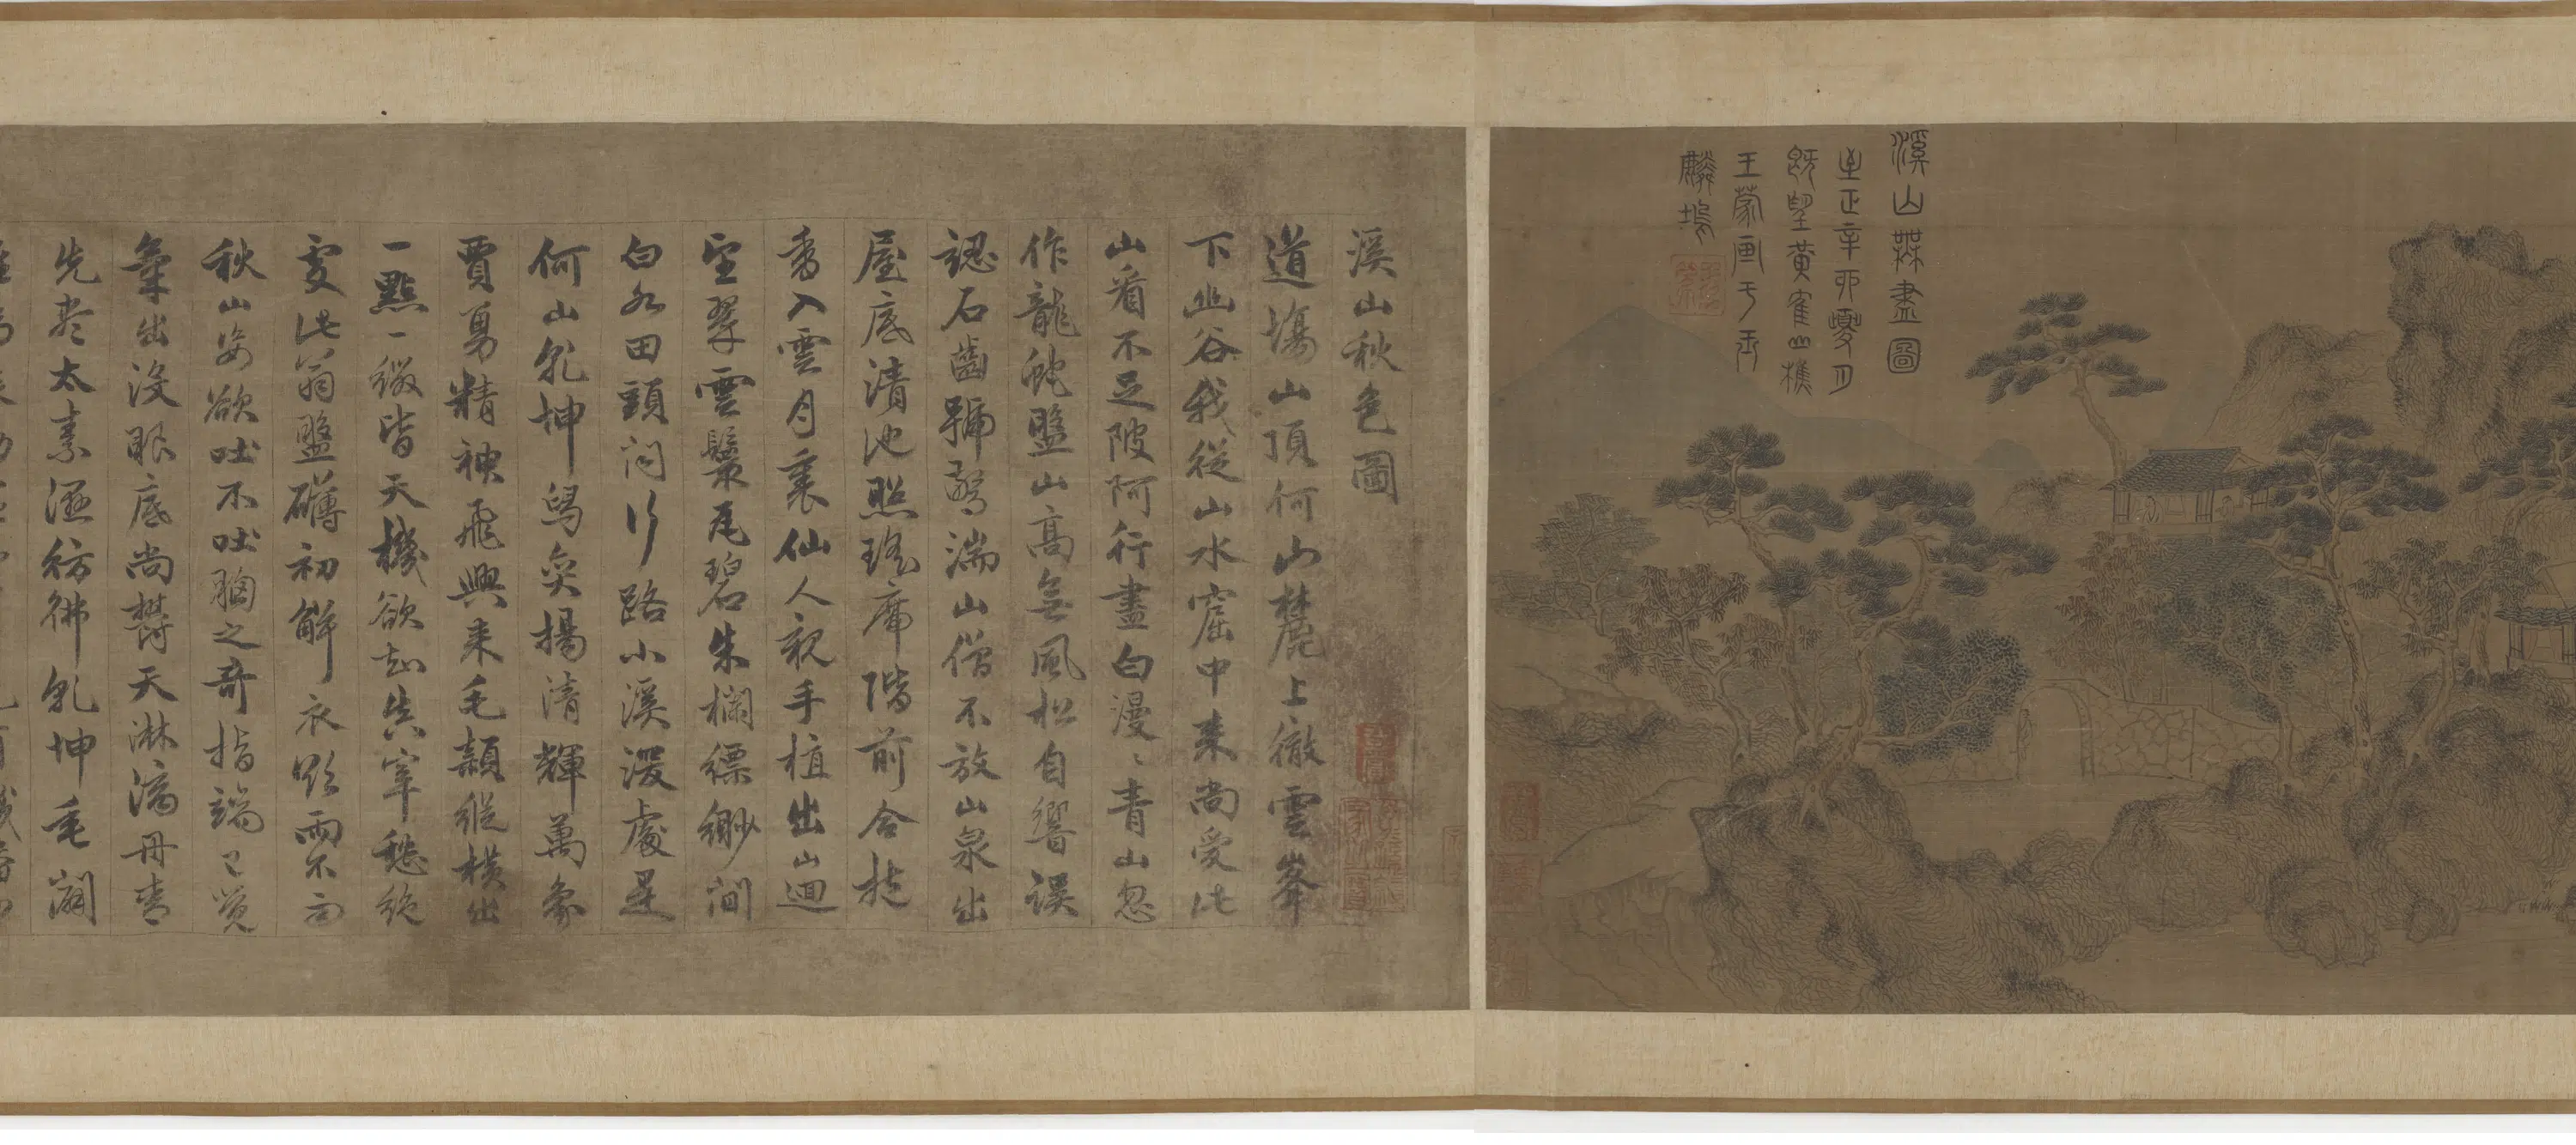 溪山無盡圖
至正辛卯夏月
既望黃隺山樵
王蒙画于玉
麟塢
溪山秋色圖
道塲山頂何山麓上徹雲峯
下幽谷我從山水窟中来尚愛此
山看不足陂阿行盡白漫〻青山忽
作龍蛇盤山高無風松自響誤
認石齒號驚湍山僧不放山泉出
屋底清池照瑤席階前合抱
香入雲月裏仙人親手植出山迴
望翠雲鬟尾碧朱欄縹緲間
白水田頭問行路小溪深處是
何山乳坤舄奕揚清輝萬象
賈勇精神飛興来毛穎縱橫出
一點一綴皆天機欲刦真宰愁絕
處此翁盤礴初解衣欲雨不雨
秋山姿欲吐不吐胸之奇指端已覺
氣出沒眼底尚欝天淋漓丹青
先老太素濕彷彿乳坤毛